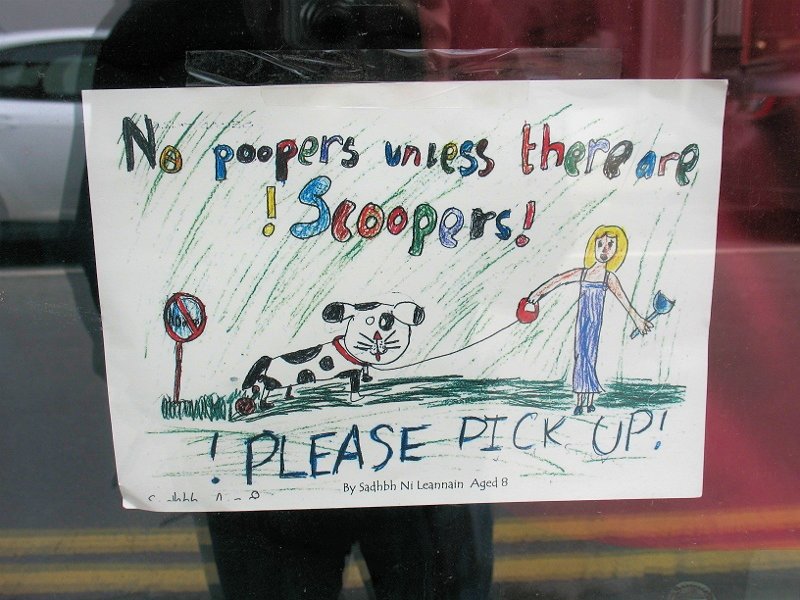 No poopers unless there are
! Scoopers!
! PLEASE PICK UP!
By Sadhbh Ni Leannain Aged 8